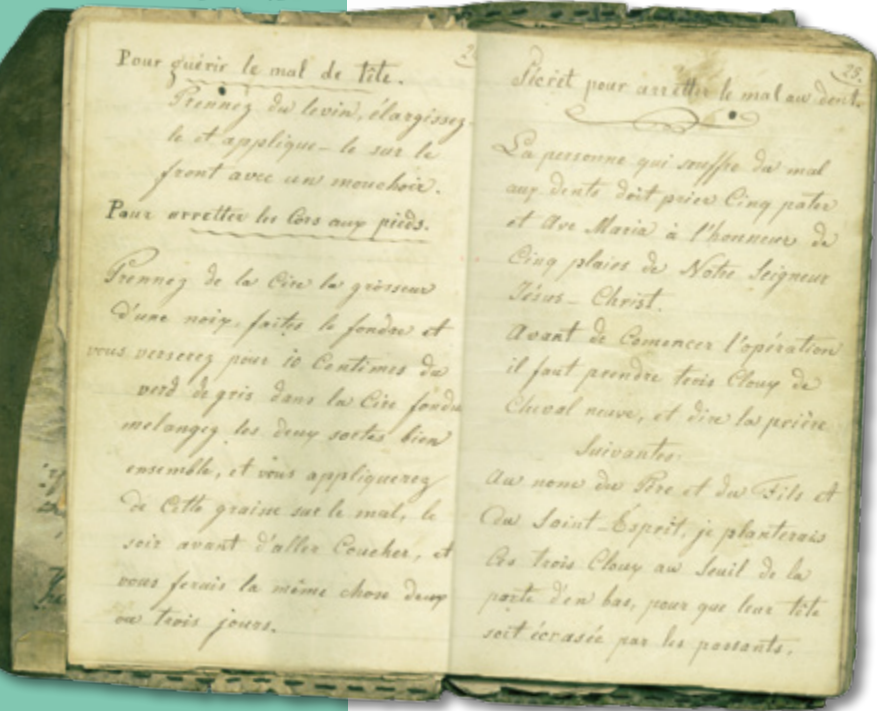 Pour guérir le mal de tête.
Prennez du levin, élargissez-
le et applique-le sur le
front avec un mouchoir.
Pour arretter les Cors aux pieds.
Prennez de la Cire la grosseur
d'une noix, faites le fondre et
vous verserez pour 10 Centimes du
verd de gris dans la Cire fondu
melangez les deux sortes bien
ensemble, et vous appliquerez
de Cette graine sur le mal, le
soir avant d'aller Coucher, et
vous ferais la même chose deux
ou trois jours.
25.
Sécrèt pour arretter le mal au dent.
La personne qui souffre du mal
aux dents doit prier Cinq pater
et Ave Maria à l'honneur de
Cinq plaies de Notre Seigneur
Jésus-Christ.
Avant de Comencer l'opération
il faut prendre trois Cloux de
Cheval neuve, et dire la prière
Suivantes:
Au nom du Père et du Fils et
du Saint-Esprit, je planterais
Ces trois Cloux au Seuil de la
porte d'en bas, pour que leur tête
soit écrasée par les passants.